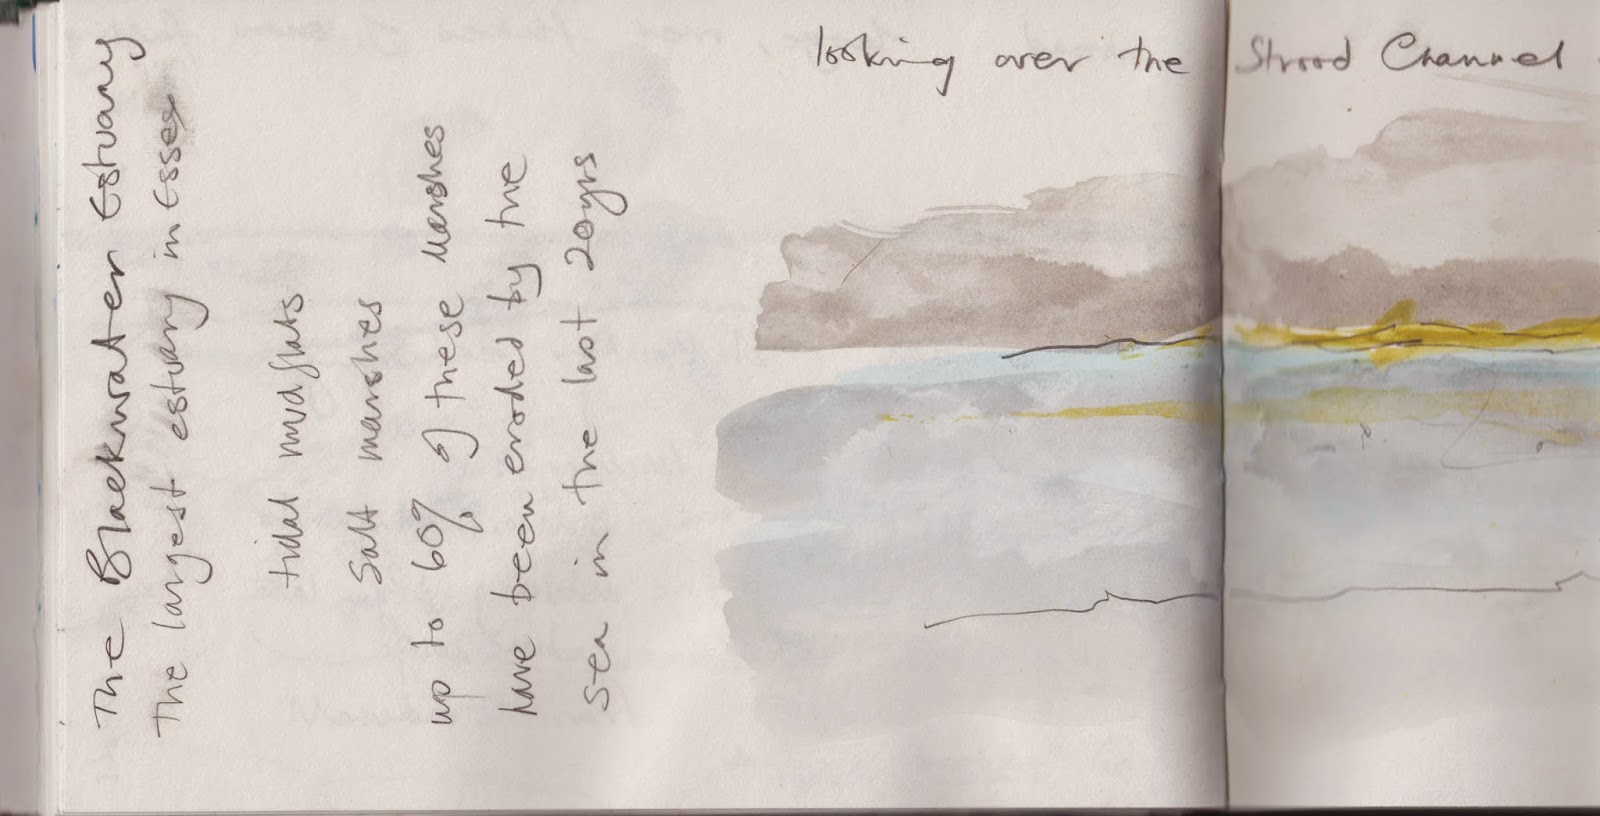 The Blackwater Estuary
The largest estuary in Essex
tidal mudflats
Salt marshes
up to 60% of these Marshes
have been eroded by the
sea in the last 20yrs
looking over the Strood Channel